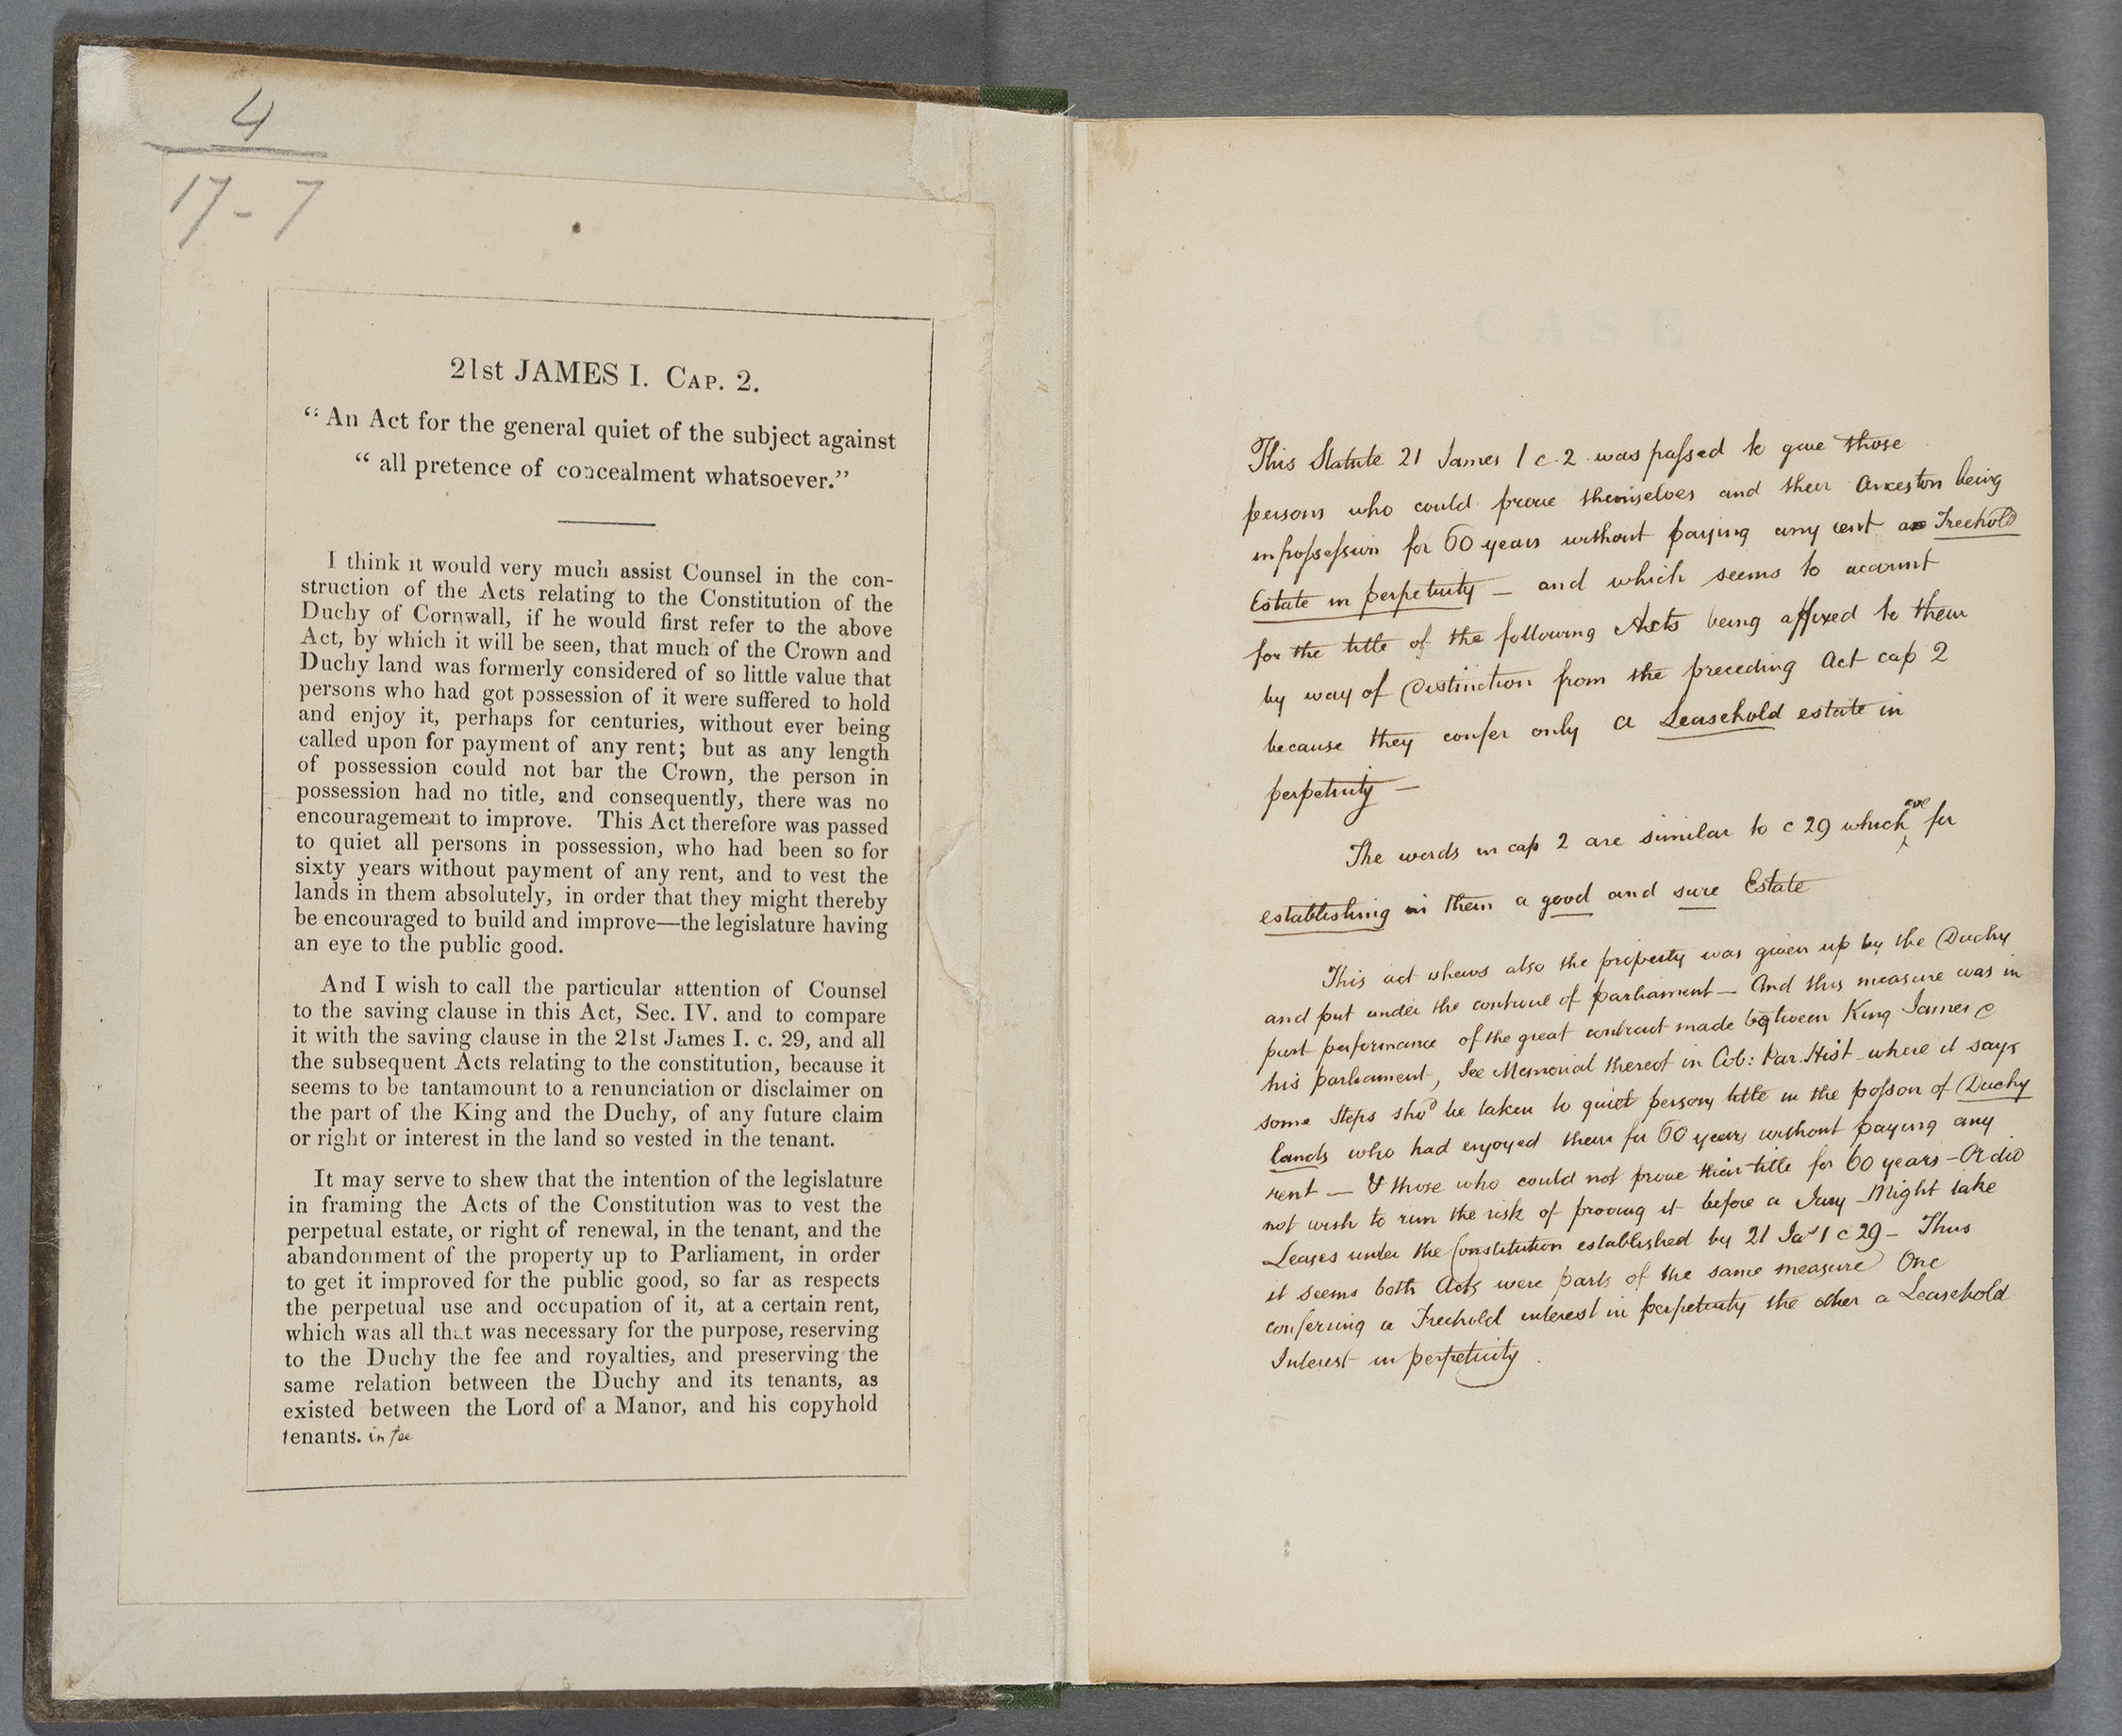 4
17 - 7
21st JAMES I. CAP. 2.
“An Act for the general quiet of the subject against
“ all pretence of concealment whatsoever.”
I think it would very much assist Counsel in the con-
struction of the Acts relating to the Constitution of the
Duchy of Cornwall, if he would first refer to the above
Act, by which it will be seen, that much of the Crown and
Duchy land was formerly considered of so little value that
persons who had got possession of it were suffered to hold
and enjoy it, perhaps for centuries, without ever being
called upon for payment of any rent; but as any length
of possession could not bar the Crown, the person in
possession had no title, and consequently, there was no
encouragement to improve. This Act therefore was passed
to quiet all persons in possession, who had been so for
sixty years without payment of any rent, and to vest the
lands in them absolutely, in order that they might thereby
be encouraged to build and improve—the legislature having
an eye to the public good.
And I wish to call the particular attention of Counsel
to the saving clause in this Act, Sec. IV. and to compare
it with the saving clause in the 21st James I. c. 29, and all
the subsequent Acts relating to the constitution, because it
seems to be tantamount to a renunciation or disclaimer on
the part of the King and the Duchy, of any future claim
or right or interest in the land so vested in the tenant.
It may serve to shew that the intention of the legislature
in framing the Acts of the Constitution was to vest the
perpetual estate, or right of renewal, in the tenant, and the
abandonment of the property up to Parliament, in order
to get it improved for the public good, so far as respects
the perpetual use and occupation of it, at a certain rent,
which was all that was necessary for the purpose, reserving
to the Duchy the fee and royalties, and preserving the
same relation between the Duchy and its tenants, as
existed between the Lord of a Manor, and his copyhold
tenants. in fee
This Statute 21 James 1 c. 2 was passed to give those
persons who could prove themselves and their Ancestors being
in possession for 60 years without paying any rent a Freehold
Estate in perpetuity — and which seems to account
for the title of the following Acts being affixed to them
by way of Distinction from the preceding Act cap 2
because they confer only a Leasehold estate in
perpetuity —
The words in cap 2 are similar to c 29 which are for
establishing in them a good and sure Estate
This act shews also the property was given up by the Duchy
and put under the controul of parliament — And this measure was in
part performance of the great contract made between King James &
his parliament, See Memorial thereof in Cob: Par. Hist where it says
some Steps shod be taken to quiet persons title in the posson of Duchy
lands who had enjoyed them for 60 years without paying any
rent — & those who could not prove their title for 60 years – Or did
not wish to run the risk of proving it before a Jury – Might take
Leases under the Constitution established by 21 Jas 1 c 29 – Thus
it seems both Acts were parts of the same measure One
conferring a Freehold interest in perpetuity the other a Leasehold
Interest in perpetuity.